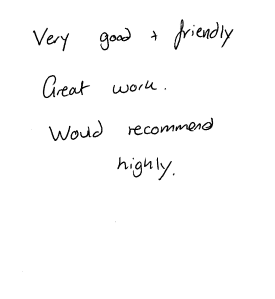 Very good + friendly
Great work.
Would recommend
highly.